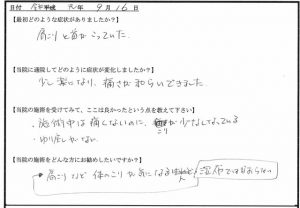 日付 令和 平成 元年 9月16日
【最初どのような症状がありましたか?】
肩こりと首がこっていた。
【当院に通院してどのように症状が変化しましたか?】
少し楽になり、痛さが和らいできました
【当院の施術を受けてみて、ここは良かったという点を教えて下さい】
・施術中は痛くないのに、こりが少なくなっている
・切り圧しがない
【当院の施術をどんな方にお勧めしたいですか?】
・肩こりなど 体のこりが気になる